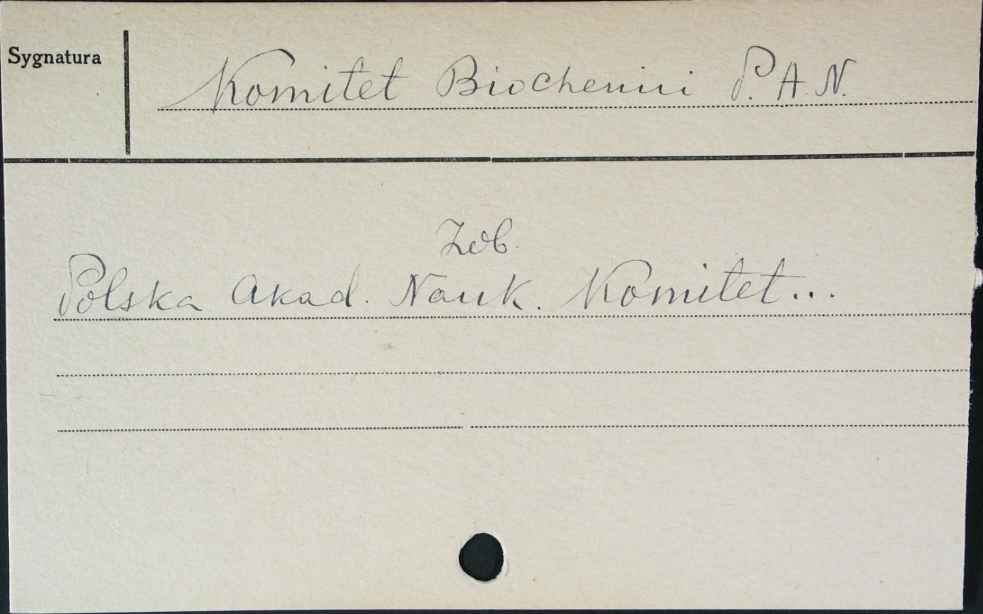 Sygnatura
Komitet Biochemii P.A.N.
Zob.
Polska Akad. Nauk. Komitet...